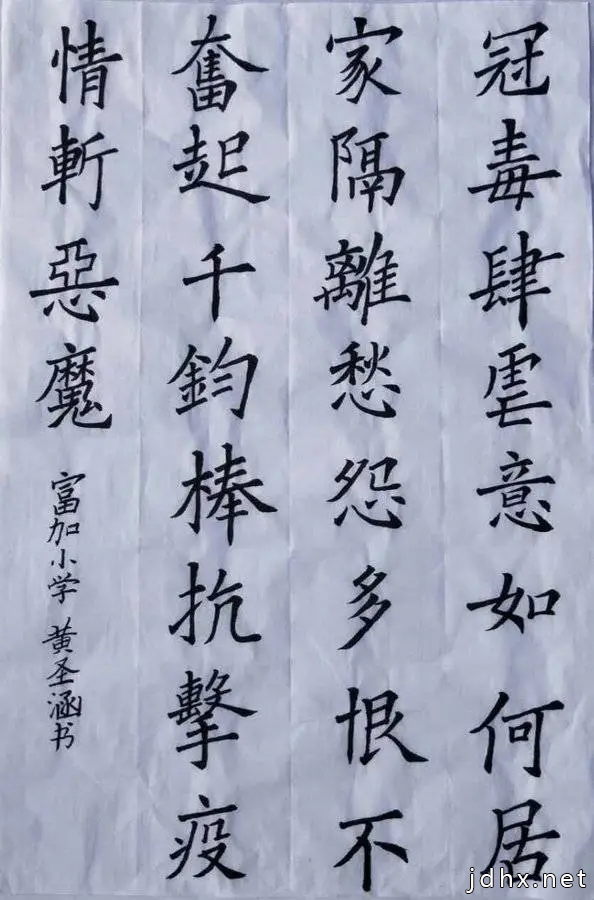 冠毒肆虐意如何居
家隔離愁怨多恨不
奮起千鈞棒抗擊疫
情斬惡魔
富加小学 黄圣涵书
jdhx.net